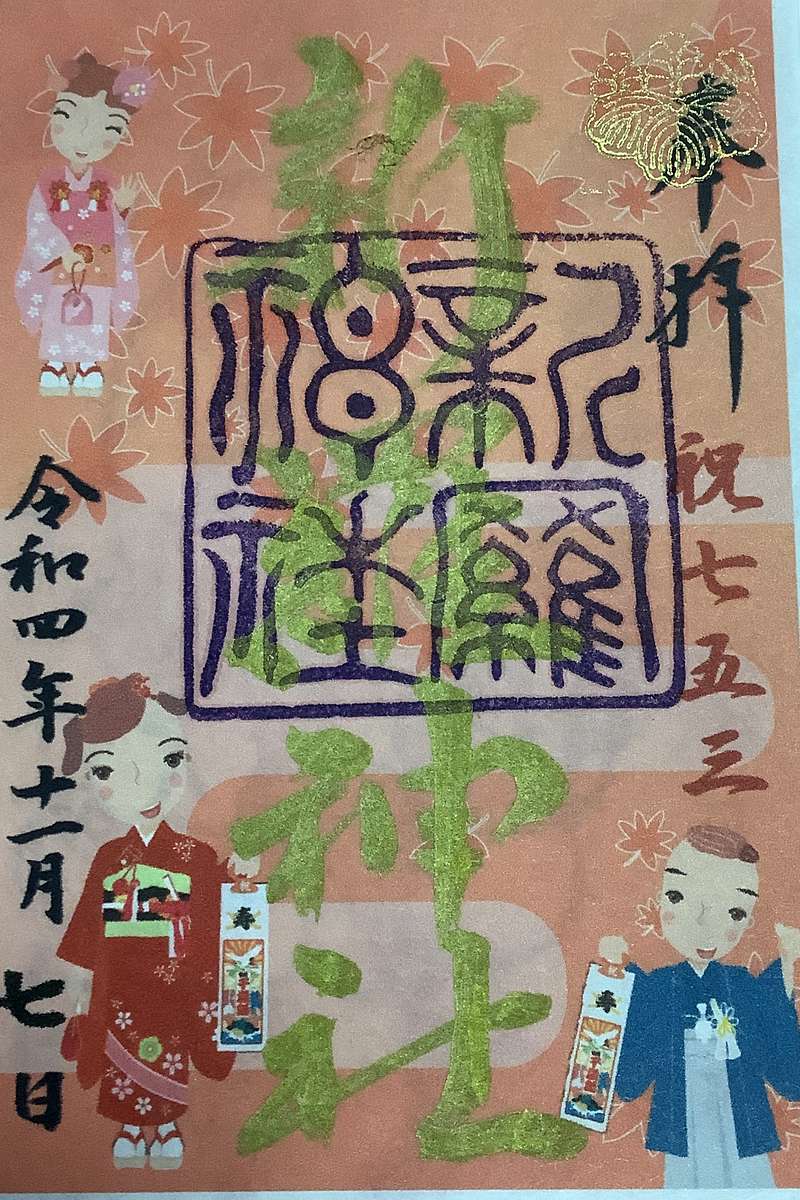 奉拝
祝七五三
新羅神社
新羅
神社
令和四年十一月七日
寿
寿